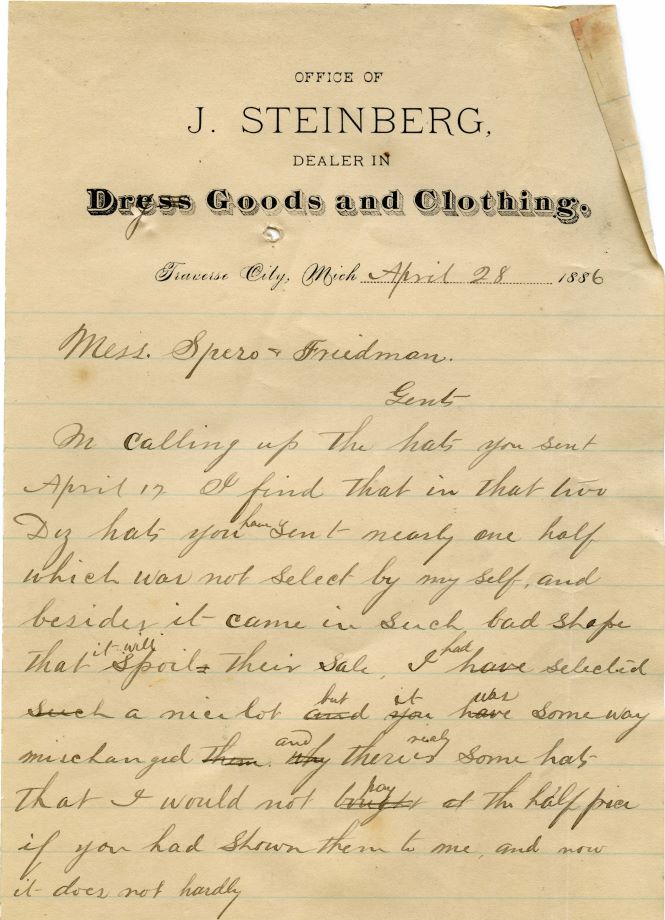 OFFICE OF
J. STEINBERG,
DEALER IN
Dress Goods and Clothing.
Traverse City, Mich April 28 1886
Mess. Spero & Friedman.
Gents
In calling up the hats you sent
April 17 I find that in that two
Dz hats you have sent nearly one half
which was not select by my self, and
besides it came in such bad shape
that it will spoil their sale, I had have selected
such a nice lot but and it you was have some way
mischanged them. and why there is realy some hats
that I would not bay bought at the half price
if you had shown them to me, and now
it does not hardly